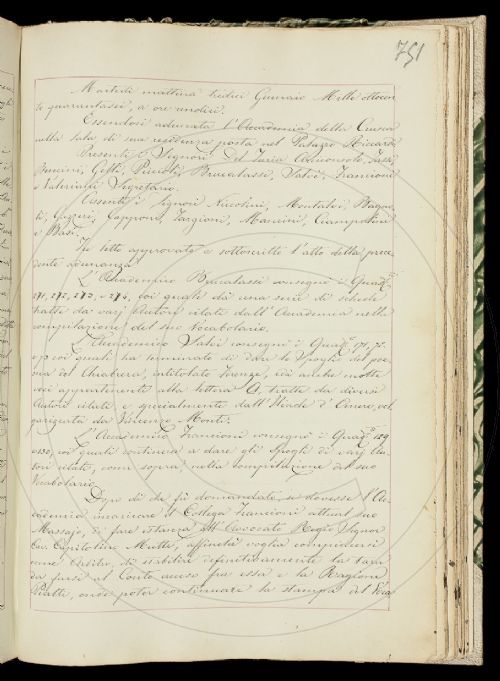 751
Martedì mattina tredici Gennaio Mille ottocen
to quarantasei, a ore undici.
Essendosi adunata l'Accademia della Crusca
nella sala di sua residenza posta nel Palazzo Riccardi
Presenti i Signori Del Furia
Puccioni, Gelli, Becchi, Brucalassi, Salvi, Franzioni
e Valeriani Segretario.
Assenti i Signori Niccolini, Montalvi, Bagno
li, Gazzeri, Capponi, Targioni, Mancini, Ciampolini
e Basi.
Fu letto approvato e sottoscritto l'atto della prece
dente adunanza.
L'Accademico Brucalassi consegnò i Quad.
271, 272, 273, e 274, coi quali dà una serie di schede
tratte da varj Autori citati dall'Accademia nella
compilazione del suo Vocabolario.
L'Accademico Salvi consegnò i Quad.
coi quali ha terminato di dare lo Spoglio del poe
ma del Chiabrera, intitolato Firenze, ed anche molte
voci appartenenti alla lettera A, tratte da diversi
Autori citati e specialmente dall'Iliade d'Omero, vol
garizzata da Vincenzo Monti.
L'Accademico Franzioni consegnò i Quad. 129
e 130, coi quali continua a dare gli Spogli di varj Au
tori citati, come sopra, nella compilazione del suo
Vocabolario.
Dopo di che fu domandato, se dovesse l'Ac
cademia incaricare il Collega Franzioni attual suo
Massajo, di fare istanza all'Avvocato Regio Signor
Cav. Capitolino Mutti, affinchè voglia compiacersi
come Arbitro, di stabilire definitivamente la tara
da farsi al Conto acceso fra essa e la Ragione
Piatti, onde poter continuare la stampa del Voca